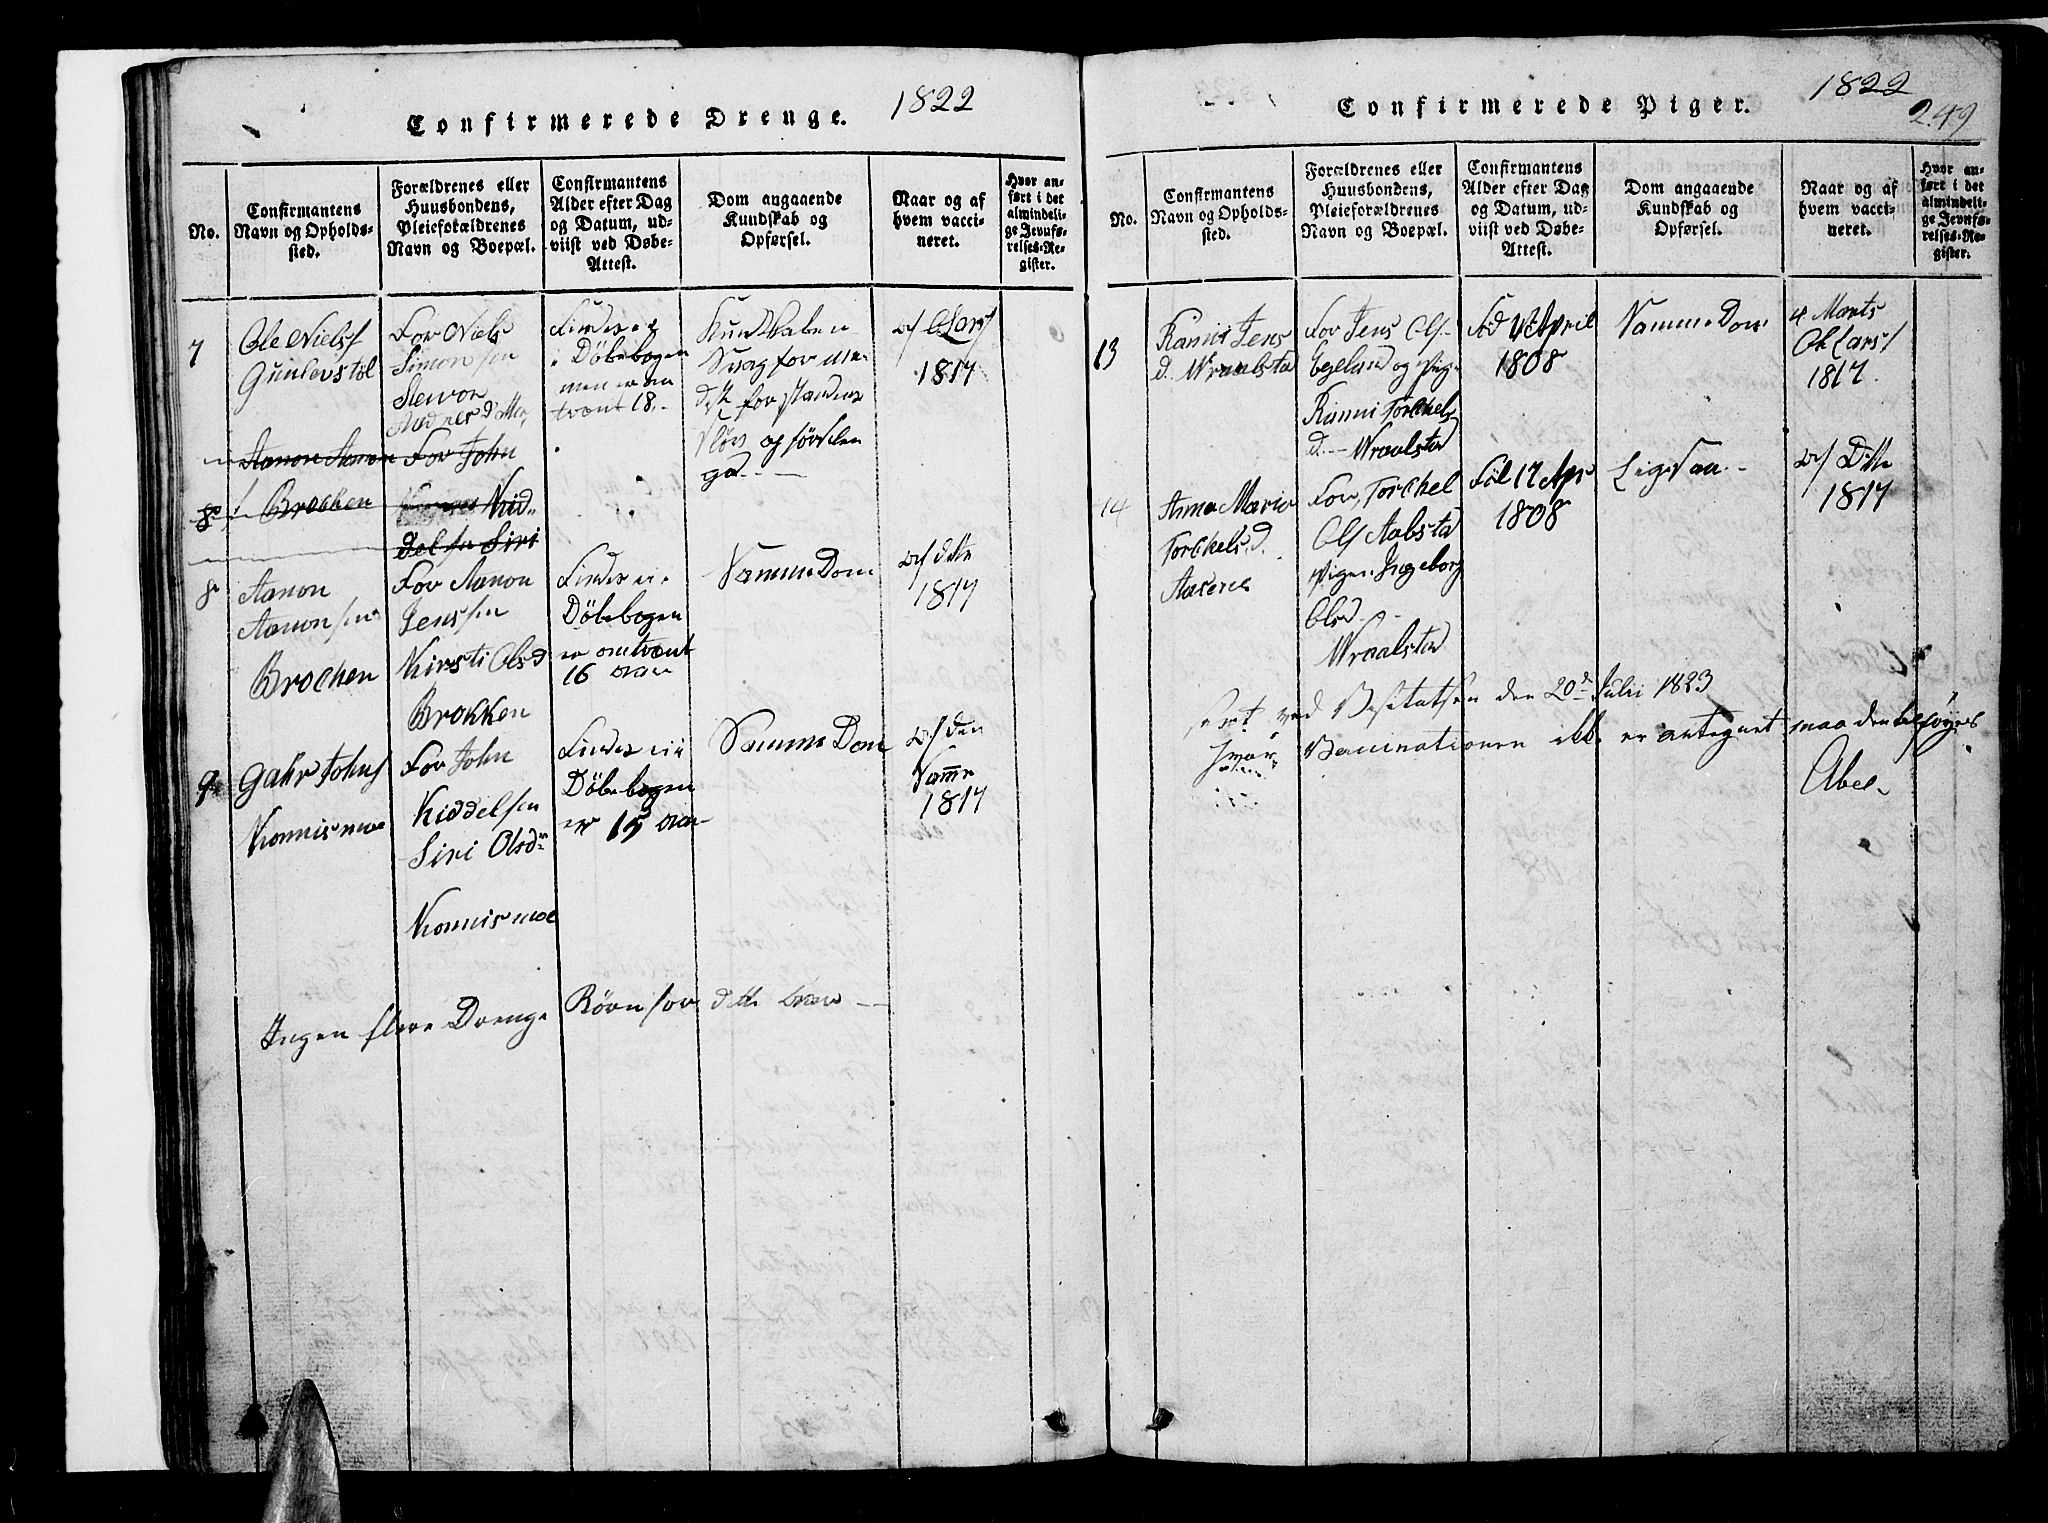 Confirmerede Drenge. 1822
No.
Confirmantens Navn og Opholds-sted.
Forældrenes eller Huusbondens, Pleieforældrenes Navn og Boepæl.
Confirmantens Alder efter Dag og Datum, ud-viist ved Døbe-Attest.
Dom angaaende Kundskab og Opførsel.
Naar og af hvem vacci-neret.
Hvor an-ført i det almindeli-ge Jevnfø-relses-Re-gister.
7
Ole Niels
Gunlevstöl
For Niels
Simonsen
Findes ei
i Döbebogen
men er om
trænt 18.
Kundskaben
Svag for
af O Lars
1817
Aanon Aanon
For John
8
Brocken
Kid
delsen Siri
8
Aanon
Aanonsen
Brocken
For Aanon
Jenssen
Kirsti Olsd
Brokken
Findes ei i
Döbebogen
er omtrænt
16 Aar
Samme Dom
af ditto
1817
9
Gahr Johns
Konnismoe
For John
Kiddelsen
Siri Olsdr
Konnismoe
Findes ei i
Döbebogen
er 15 Aar
Samme Dom
af den
Samme
1817
Ingen flere Drenge
Confirmerede Piger. 1822
249
No.
Confirmantens Navn og Opholds-sted.
Forældrenes eller Huusbondens, Pleieforældrenes Navn og Boepæl.
Confirmantens Alder efter Dag og Datum, ud-viist ved Døbe-Attest.
Dom angaaende Kundskab og Opførsel.
Naar og af hvem vacci-neret.
Hvor an-ført i det almindeli-ge Jevnfø-relses-Re-gister.
13
Ranni Jens
d. Wraalstad
For Jens Ols
Egeland og Pig
Ranni Torckels
d. Wraalstad
April
1808
Samme Dom
4 Marts
O Lars
1817.
14
Anna Maria
Torckelsd.
For, Torckel
Ols Aabstad
Pigen Ingeborg
Olsd.
Wraalstad
Föd 17 Apr
1808
af Ditto
1817
ved Visitatsen den 20de Julii 1823
Hvor Vaccinationen ikke er antegnet, maa den tilföyes
Abel